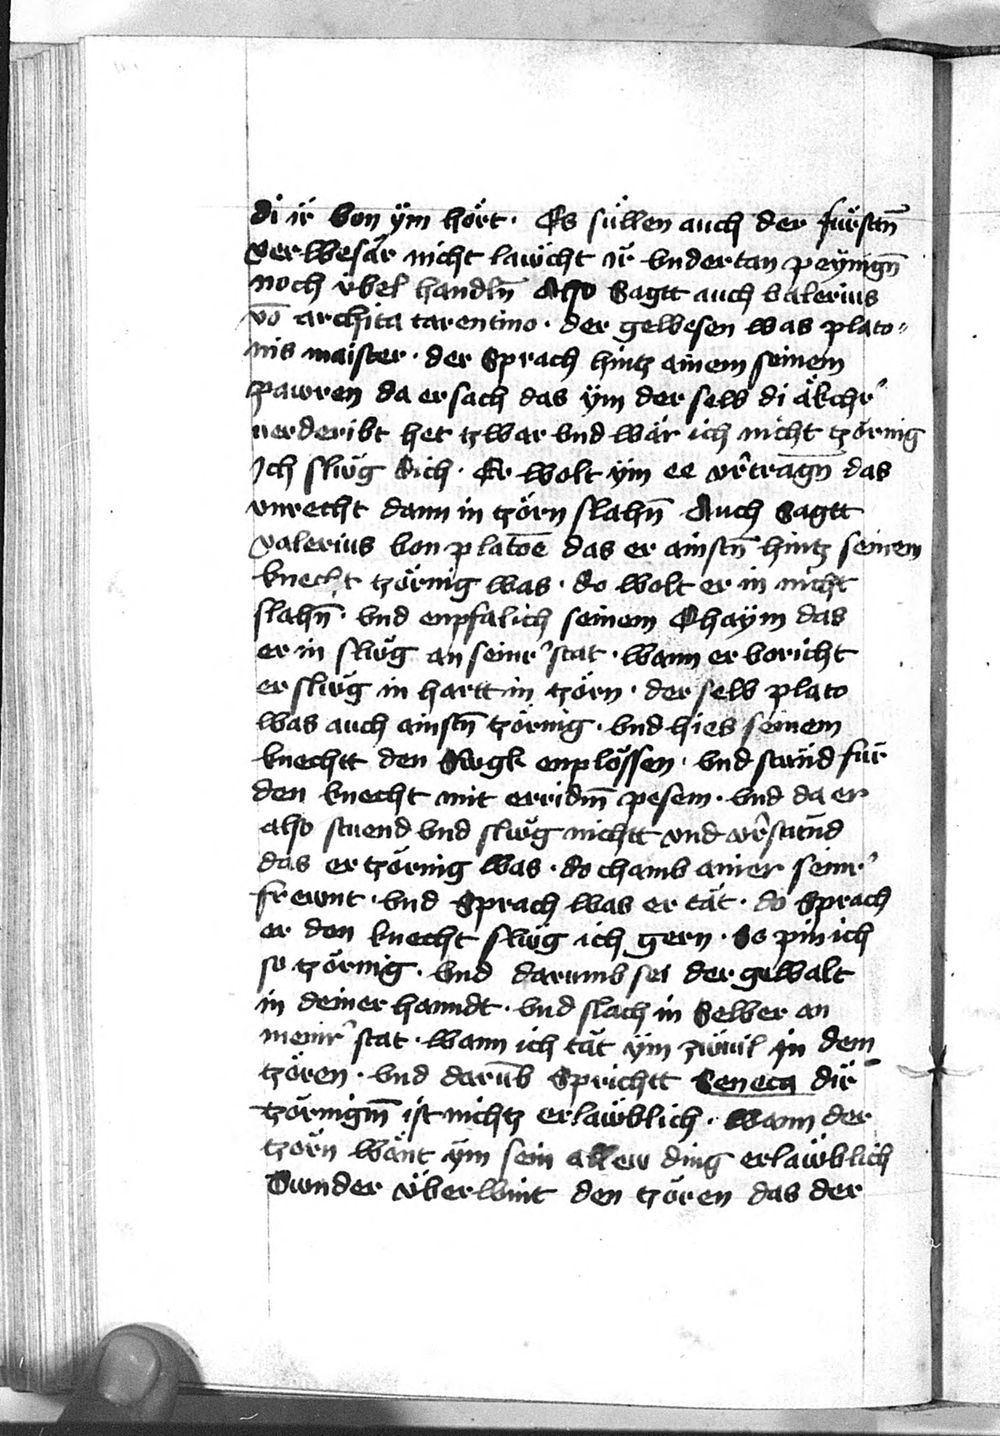 di ir von ÿm hört · Es süllen auch der fürstn̄
verwesär nicht lawcht ir vndertan peÿnign̄
noch vbel handln̄ Also Sagtt auch valerius
vō archita tarentino · der gewesen was plato⸗
nis maister · der Sprach hintz ainem seinem
pawren da er sach das ÿm der selb di äkchr̛
verderibt het tzwar vnd wär ich nicht tzörnig
Ich slüg dich · Er wolt ÿm ee vr̂tragn̄ das
vnrecht dann in tzörn slahn̄ Auch Sagtt
valerius von platōe das er ainstn̄ hintz seinem
knecht tzörnig was · do wolt er in nicht
slahn̄ · vnd enpfalich seinem Ohaÿm das
er in slüg an seinr̛ stat · wann er voricht
er slüg in hartt in tzörn · der selb plato
was auch ainstn̄ tzörnig · vnd hies seinem
knechtt den Rugk enplössen · vnd stünd für
den knecht mit erridm̄ pesem · vnd da er
also stuend vnd slüg nichtt vnd vr̂stünd
das er tzörnig was · do chamb ainer seinr̛
frewnt · vnd Sprach was er tät · do Sprach
er den knecht slüg ich gern · So pin ich
so tzörnig · vnd darumb sei der gewalt
in deiner hanndt · vnd slach in Selber an
meinr̛ stat · wann ich tät ÿm zwuil in dem
tzören · vnd darūb Sprichtt Seneca dir
tzörnigm̄ ist nichtz erlawblich · wann der
tzörn wänt ÿm sein allew ding erlawblich
Vnnder vberwint den tzören das der